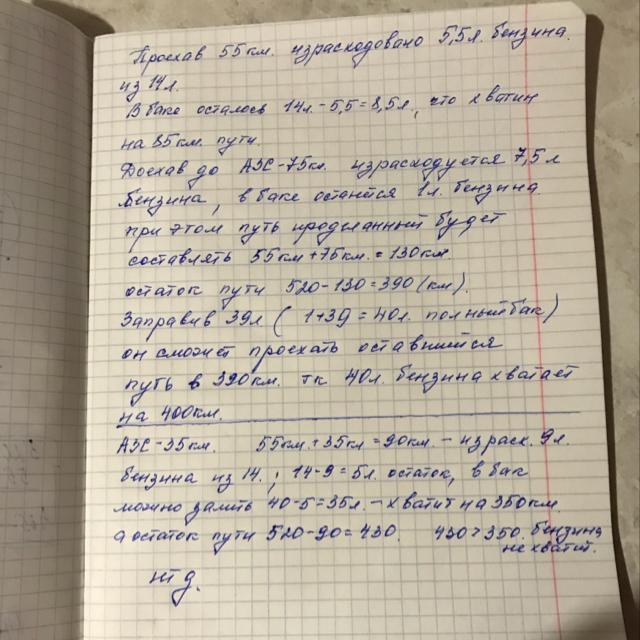 Проехав 55км. израсходовано 5,5л. бензина
из 14л.
В баке осталось 14л - 5,5 = 8,5л, что хватит
на 85км. пути.
Доехав до АЗС-75км. израсходуется 7,5л
бензина, в баке останется 1л. бензина
при этом путь проделанный будет
составлять 55км + 75км. = 130км.
остаток пути 520-130=390(км).
Заправив 39л (1+39=40л. полный бак)
он сможет проехать оставшийся
путь в 390км. тк 40л. бензина хватает
на 400км.
АЗС-35км. 55км.+35км=90км. - израсх. 9л.
бензина из 14. ; 14-9=5л. остаток, в бак
можно залить 40-5=35л. - хватит на 350км
а остаток пути 520-90=430. 430>350. бензина
не хватит.